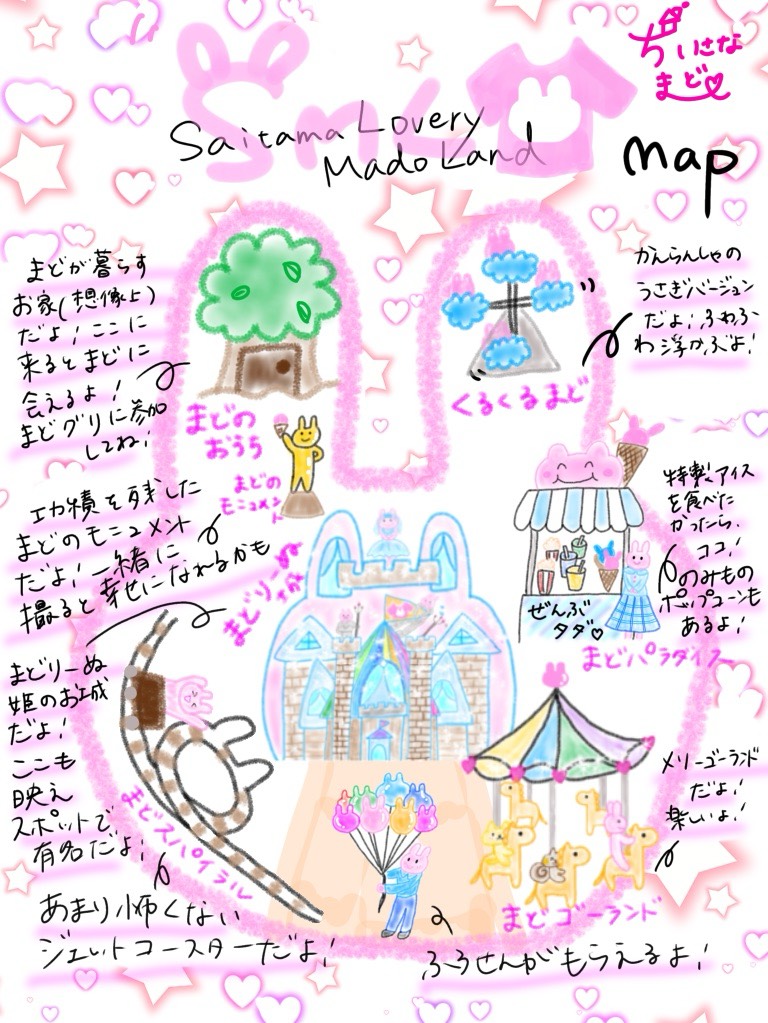 ちいさな
まど
SML
Saitama Lovery
Mado Land
map
まどが暮らす
お家(想像上)
だよ!ここに
来るとまどに
会えるよ!
まどグリに参加
してね!
かんらんしゃの
うさぎバージョン
だよ!ふわふ
わ浮かぶよ!
まどの
おうち
くるくるまど
まどの
モニュメント
功績を残した
まどのモニュメント
だよ!一緒に
撮ると幸せになれるかも
まどりーぬ城
特製アイス
を食べた
かったら、
ココ!
のみもの
ポップコーンも
あるよ!
ぜんぶ
タダ
まどパラダイス
まどりーぬ
姫のお城
だよ!
ここも
映え
スポットで
有名だよ!
まどスパイラル
メリーゴーランド
だよ!
楽しいよ!
まどゴーランド
あまり怖くない
ジェットコースターだよ!
ふうせんがもらえるよ!